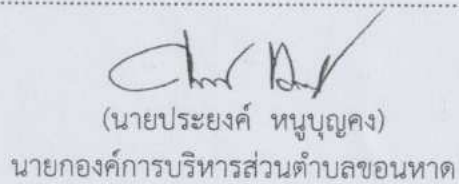 (นายประยงค์ หนูบุญคง)
นายกองค์การบริหารส่วนตำบลขอนหาด